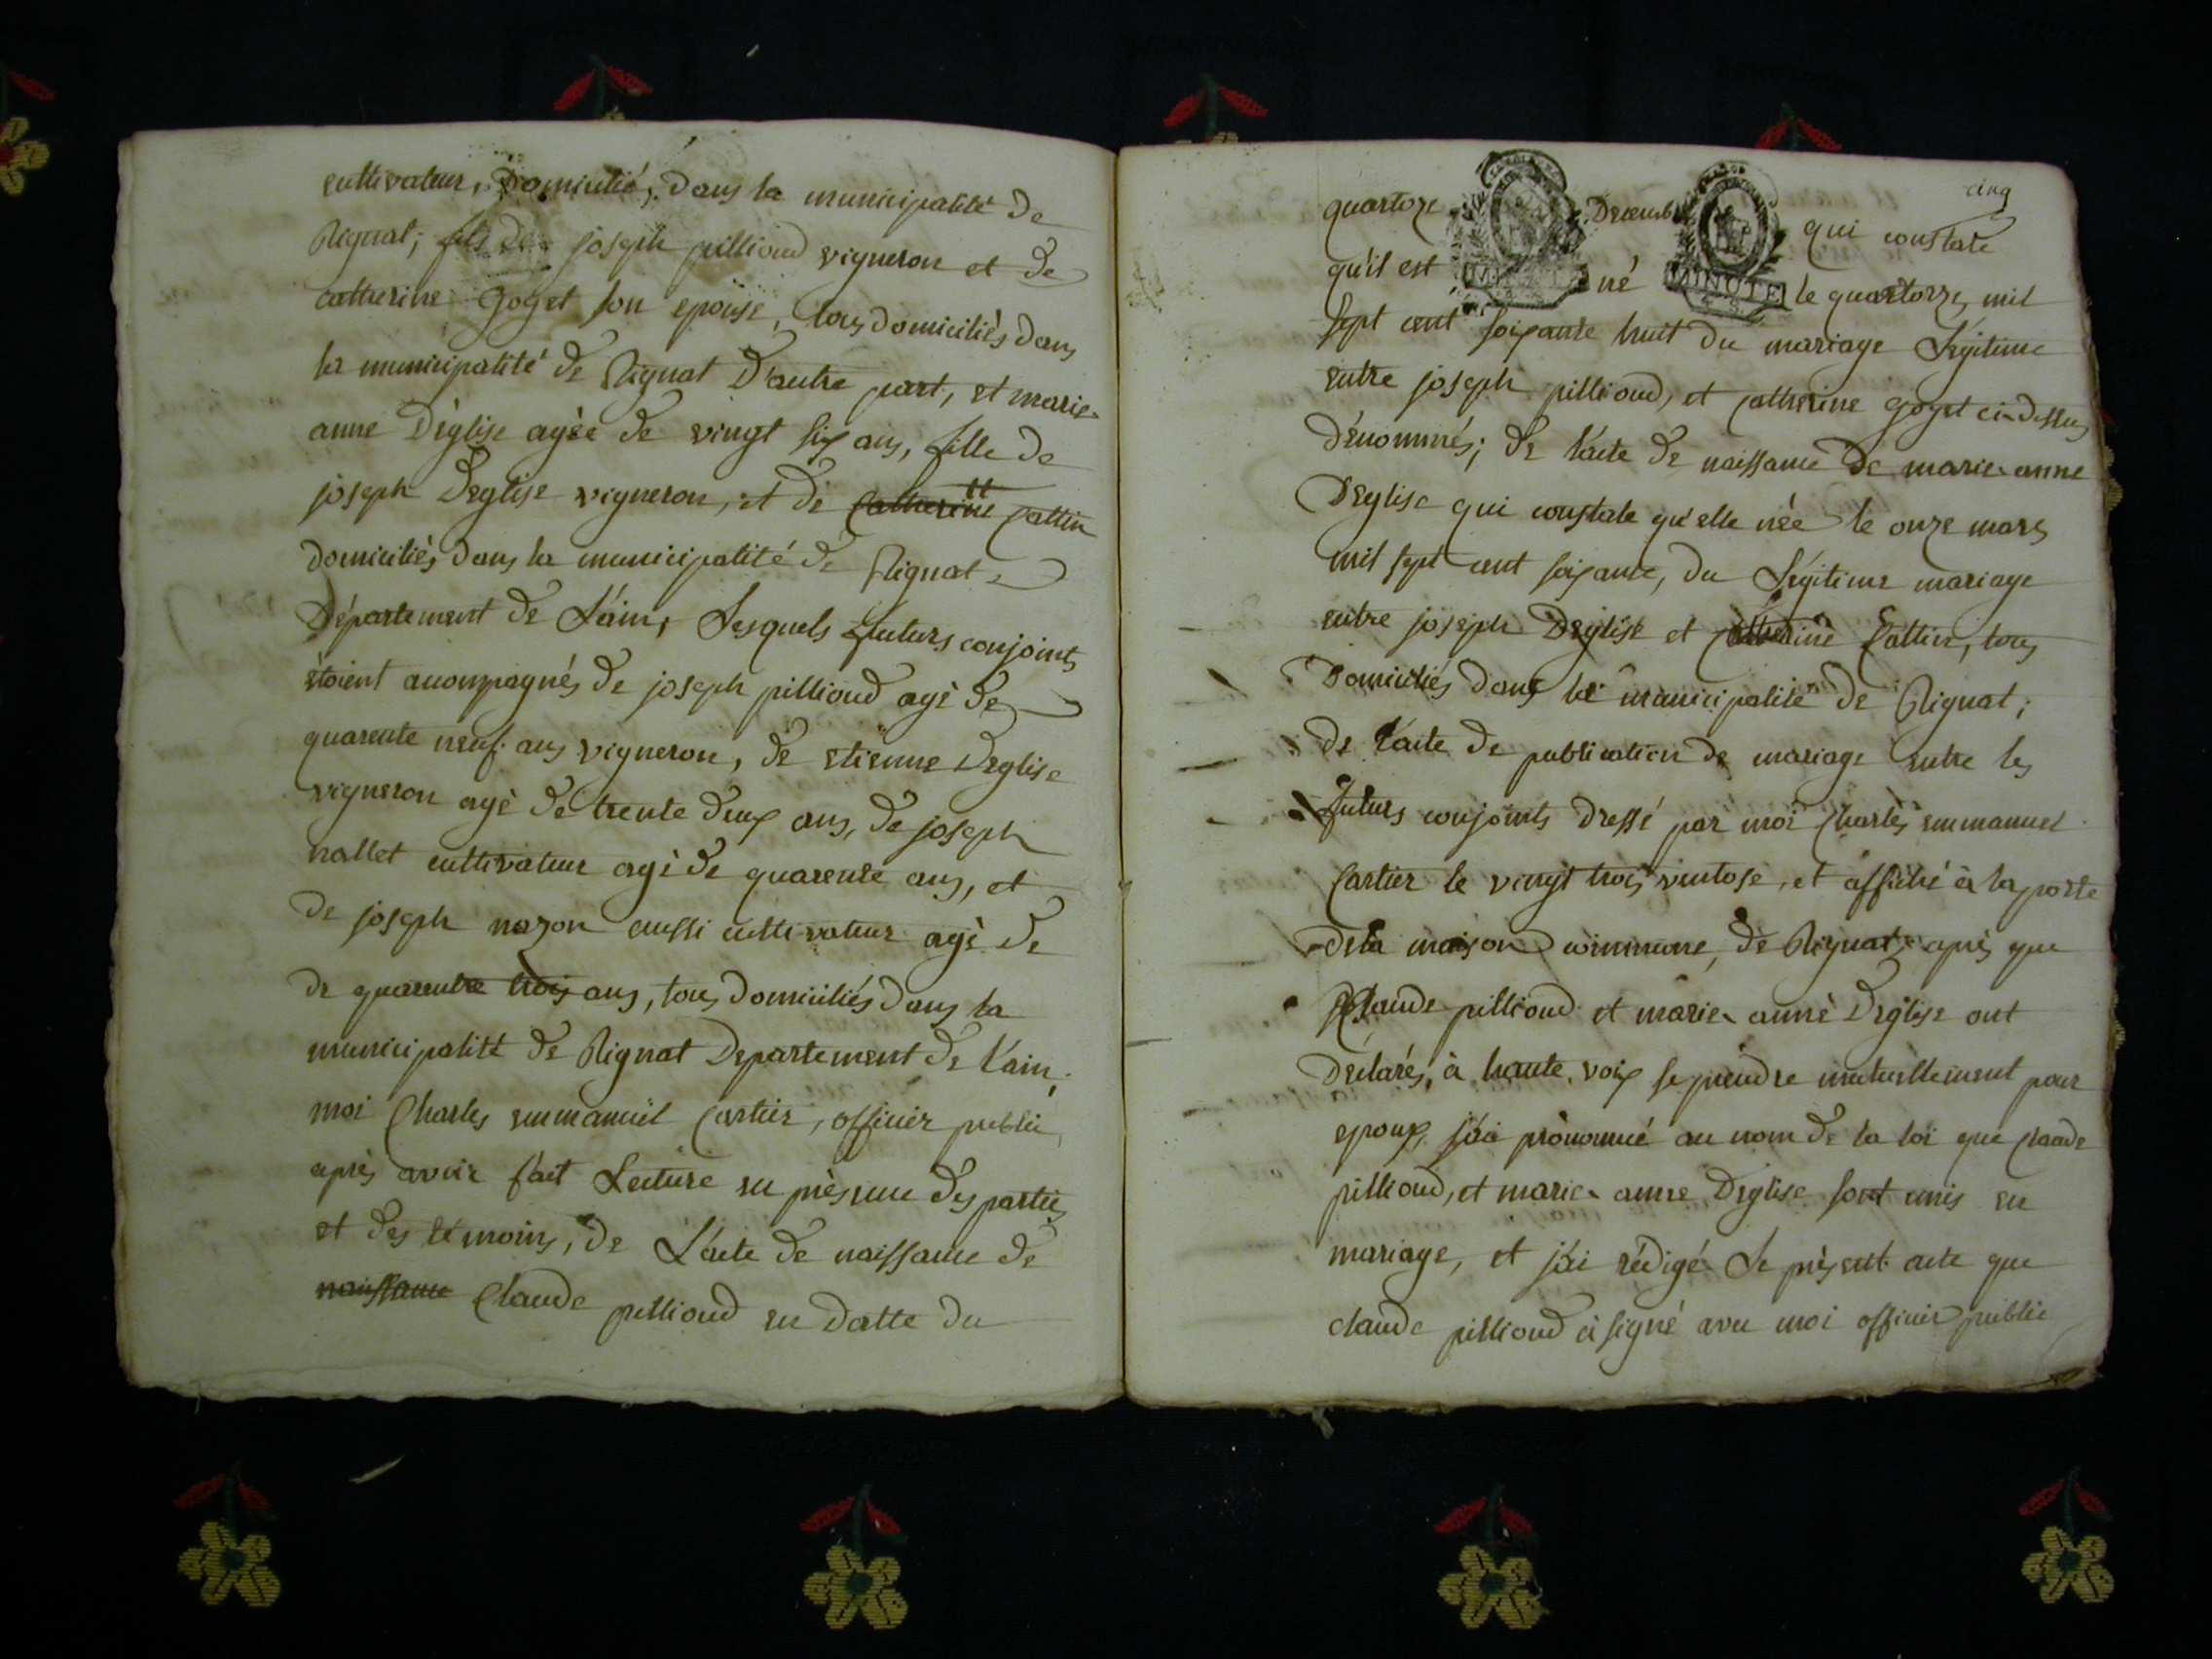 cultivateur, Domicilié, dans la municipalité de
Rignat; fils de joseph pillioud vigneron et de
catherine goget son epouse, tous domiciliés dans
la municipalité de Rignat D'autre part, et marie
anne D'église agée de vingt six ans, fille de
joseph Deglise vigneron, et de Catherine Cattin
domiciliés dans la municipalité de Rignat
Département de L'ain, Lesquels futurs conjoints
étoient acompagnés de joseph pillioud agé de
quarente neuf ans vigneron, de etienne Deglise
vigneron agé de trente deux ans, de joseph
nallet cultivateur agé de quarente ans, et
de joseph nazon aussi cultivateur agé de
de quarentre trois ans, tous domiciliés dans la
municipalité de Rignat Departement de l'ain
moi Charles emmanuel Cartier, officier public,
après avoir fait Lecture en présence des parties
et des témoins, de L'acte de naissance de
naissance Claude pillioud en datte du
cinq
quartoze Decemb qui constate
qu'il est né le quartorze mil
MINUTE
sept cent soixante huit du mariage Légitime
entre joseph pillioud, et catherine goget ci-dessus
dénommés; de l'acte de naissance de marie anne
Deglise qui constate qu'elle née le onze mars
mil sept cent soixante, du Légitime mariage
entre joseph Deglise et Catherine Cattin, tous
Domiciliés dans la municipalité de Rignat;
de l'acte de publication de mariage entre les
futurs conjoints dressé par moi Charles emmanuel
Cartier le vingt trois ventose, et affiché à la porte
de la maison commune, de Rignat après que
Claude pillioud et marie anne Deglise ont
déclarés, à haute voix se prendre mutuellement pour
epoux, j'ai prononcé au nom de la loi que Claude
pillioud, et marie anne Deglise sont unis en
mariage, et j'ai rédigé Le présent acte que
claude pillioud à signé avec moi officier public